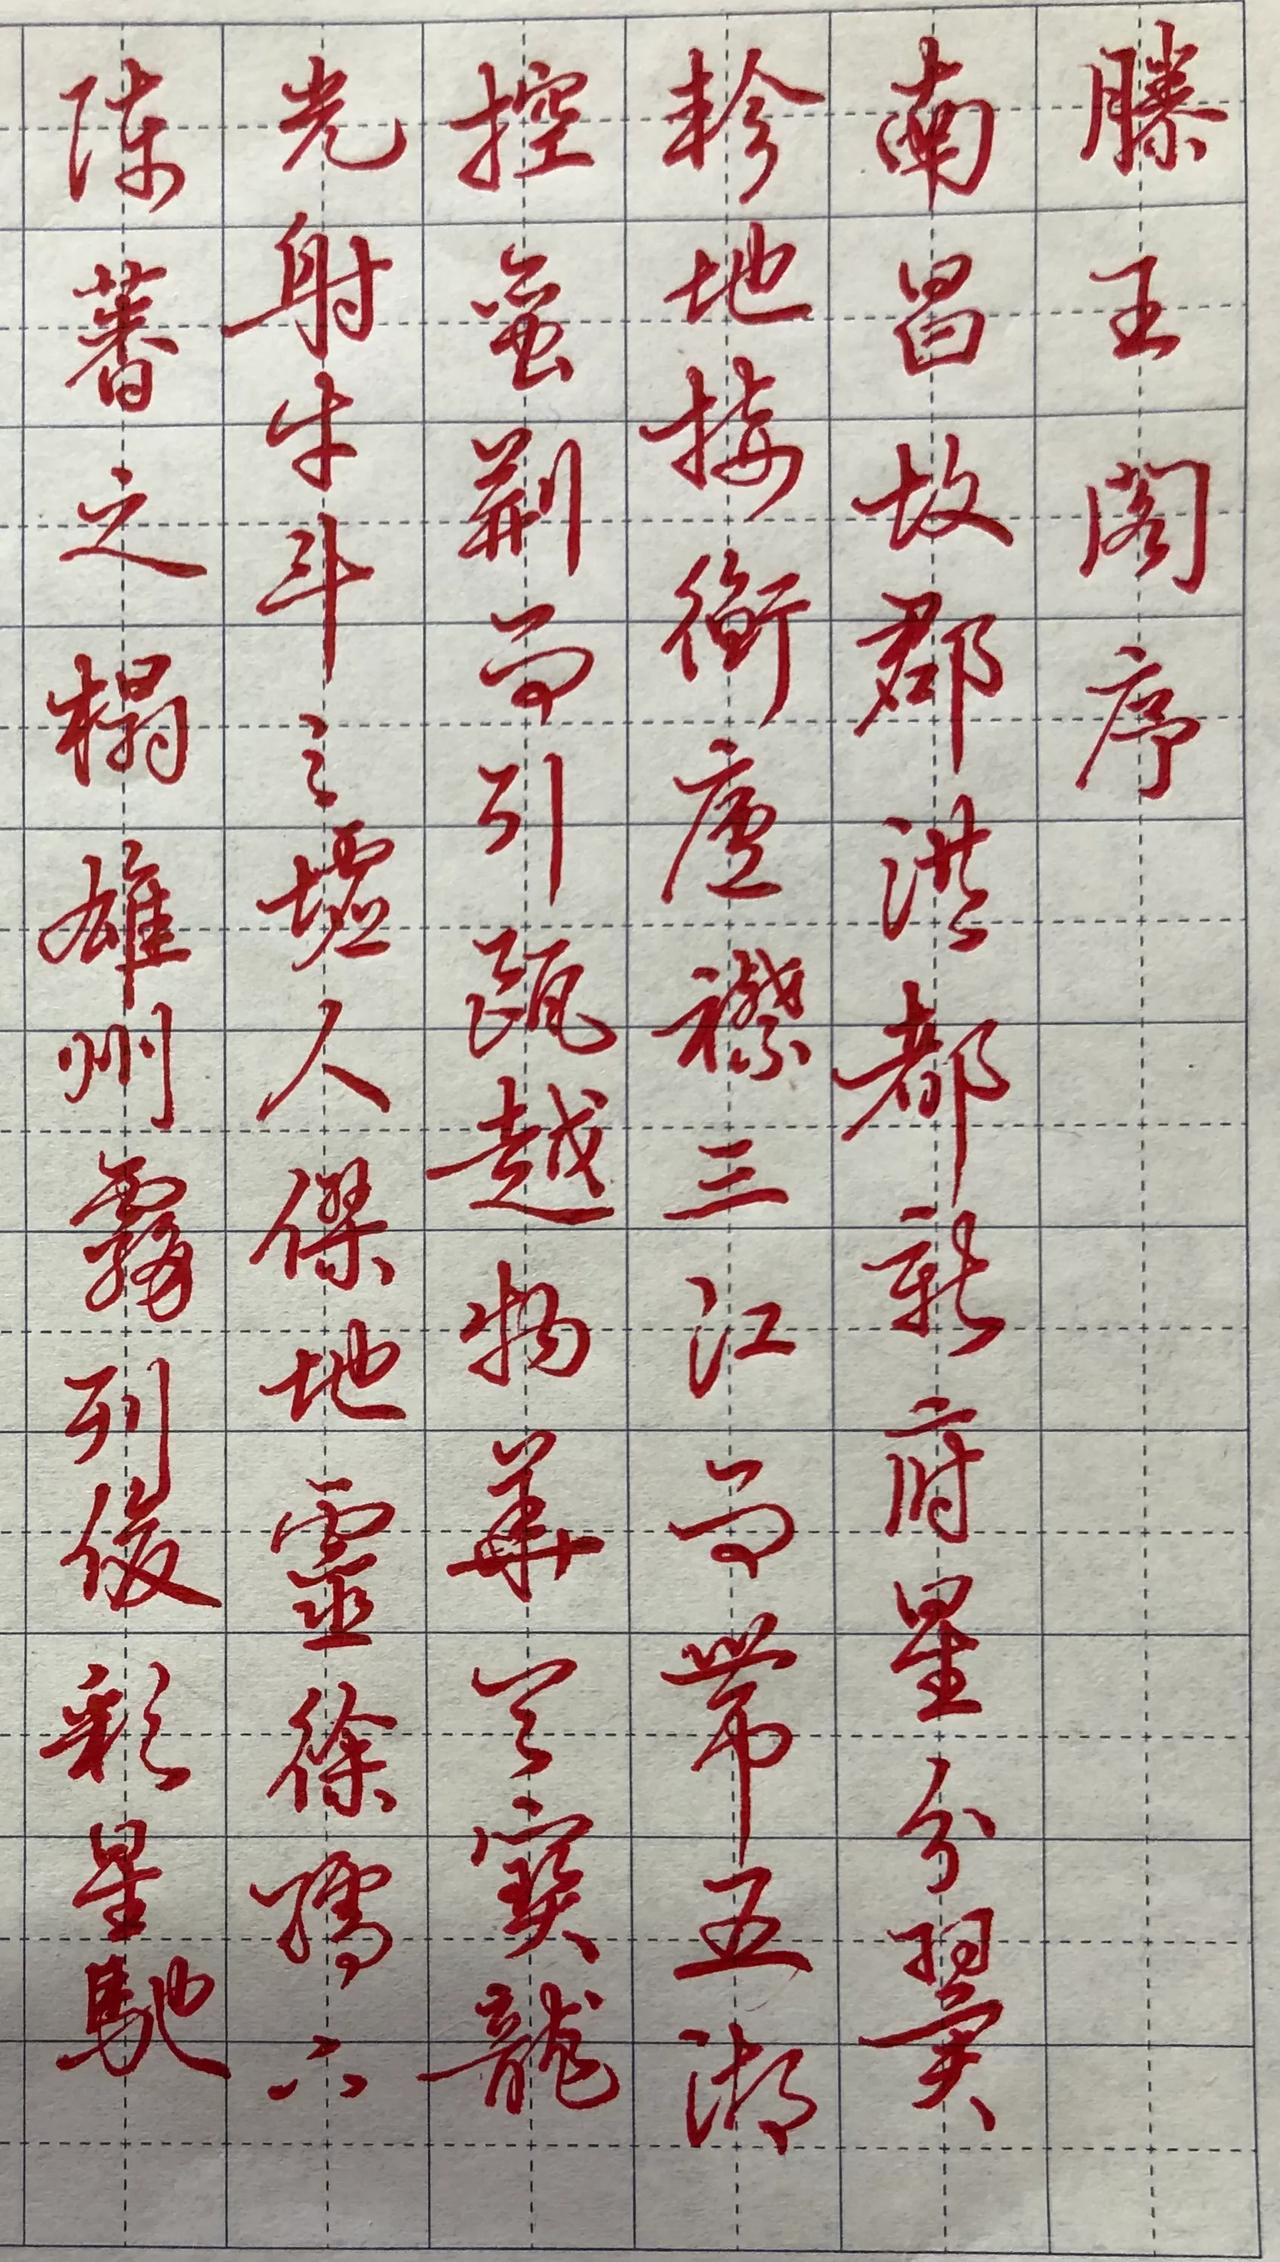 滕王阁序
南昌故郡洪都新府星分翼
轸地接衡廬襟三江而带五湖
控蛮荆而引瓯越物華天寳龍
光射牛斗之墟人傑地靈徐孺下
陈蕃之榻雄州霧列俊彩星馳